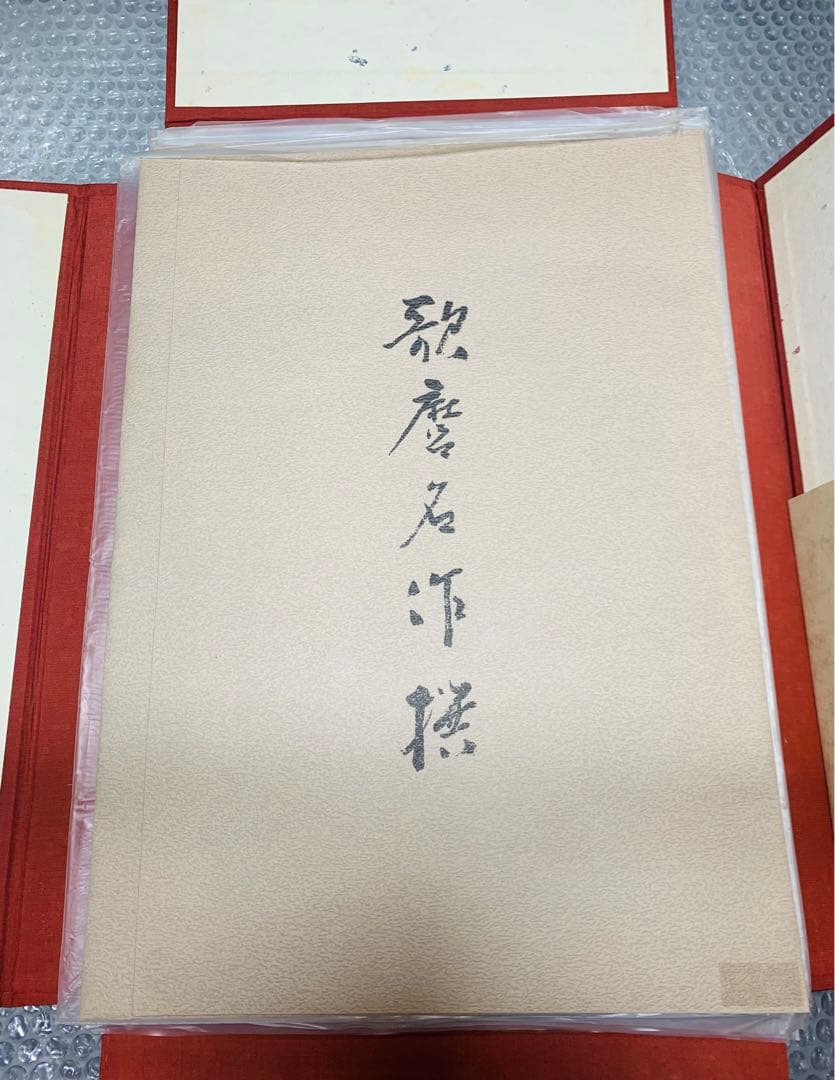 歌麿名作撰